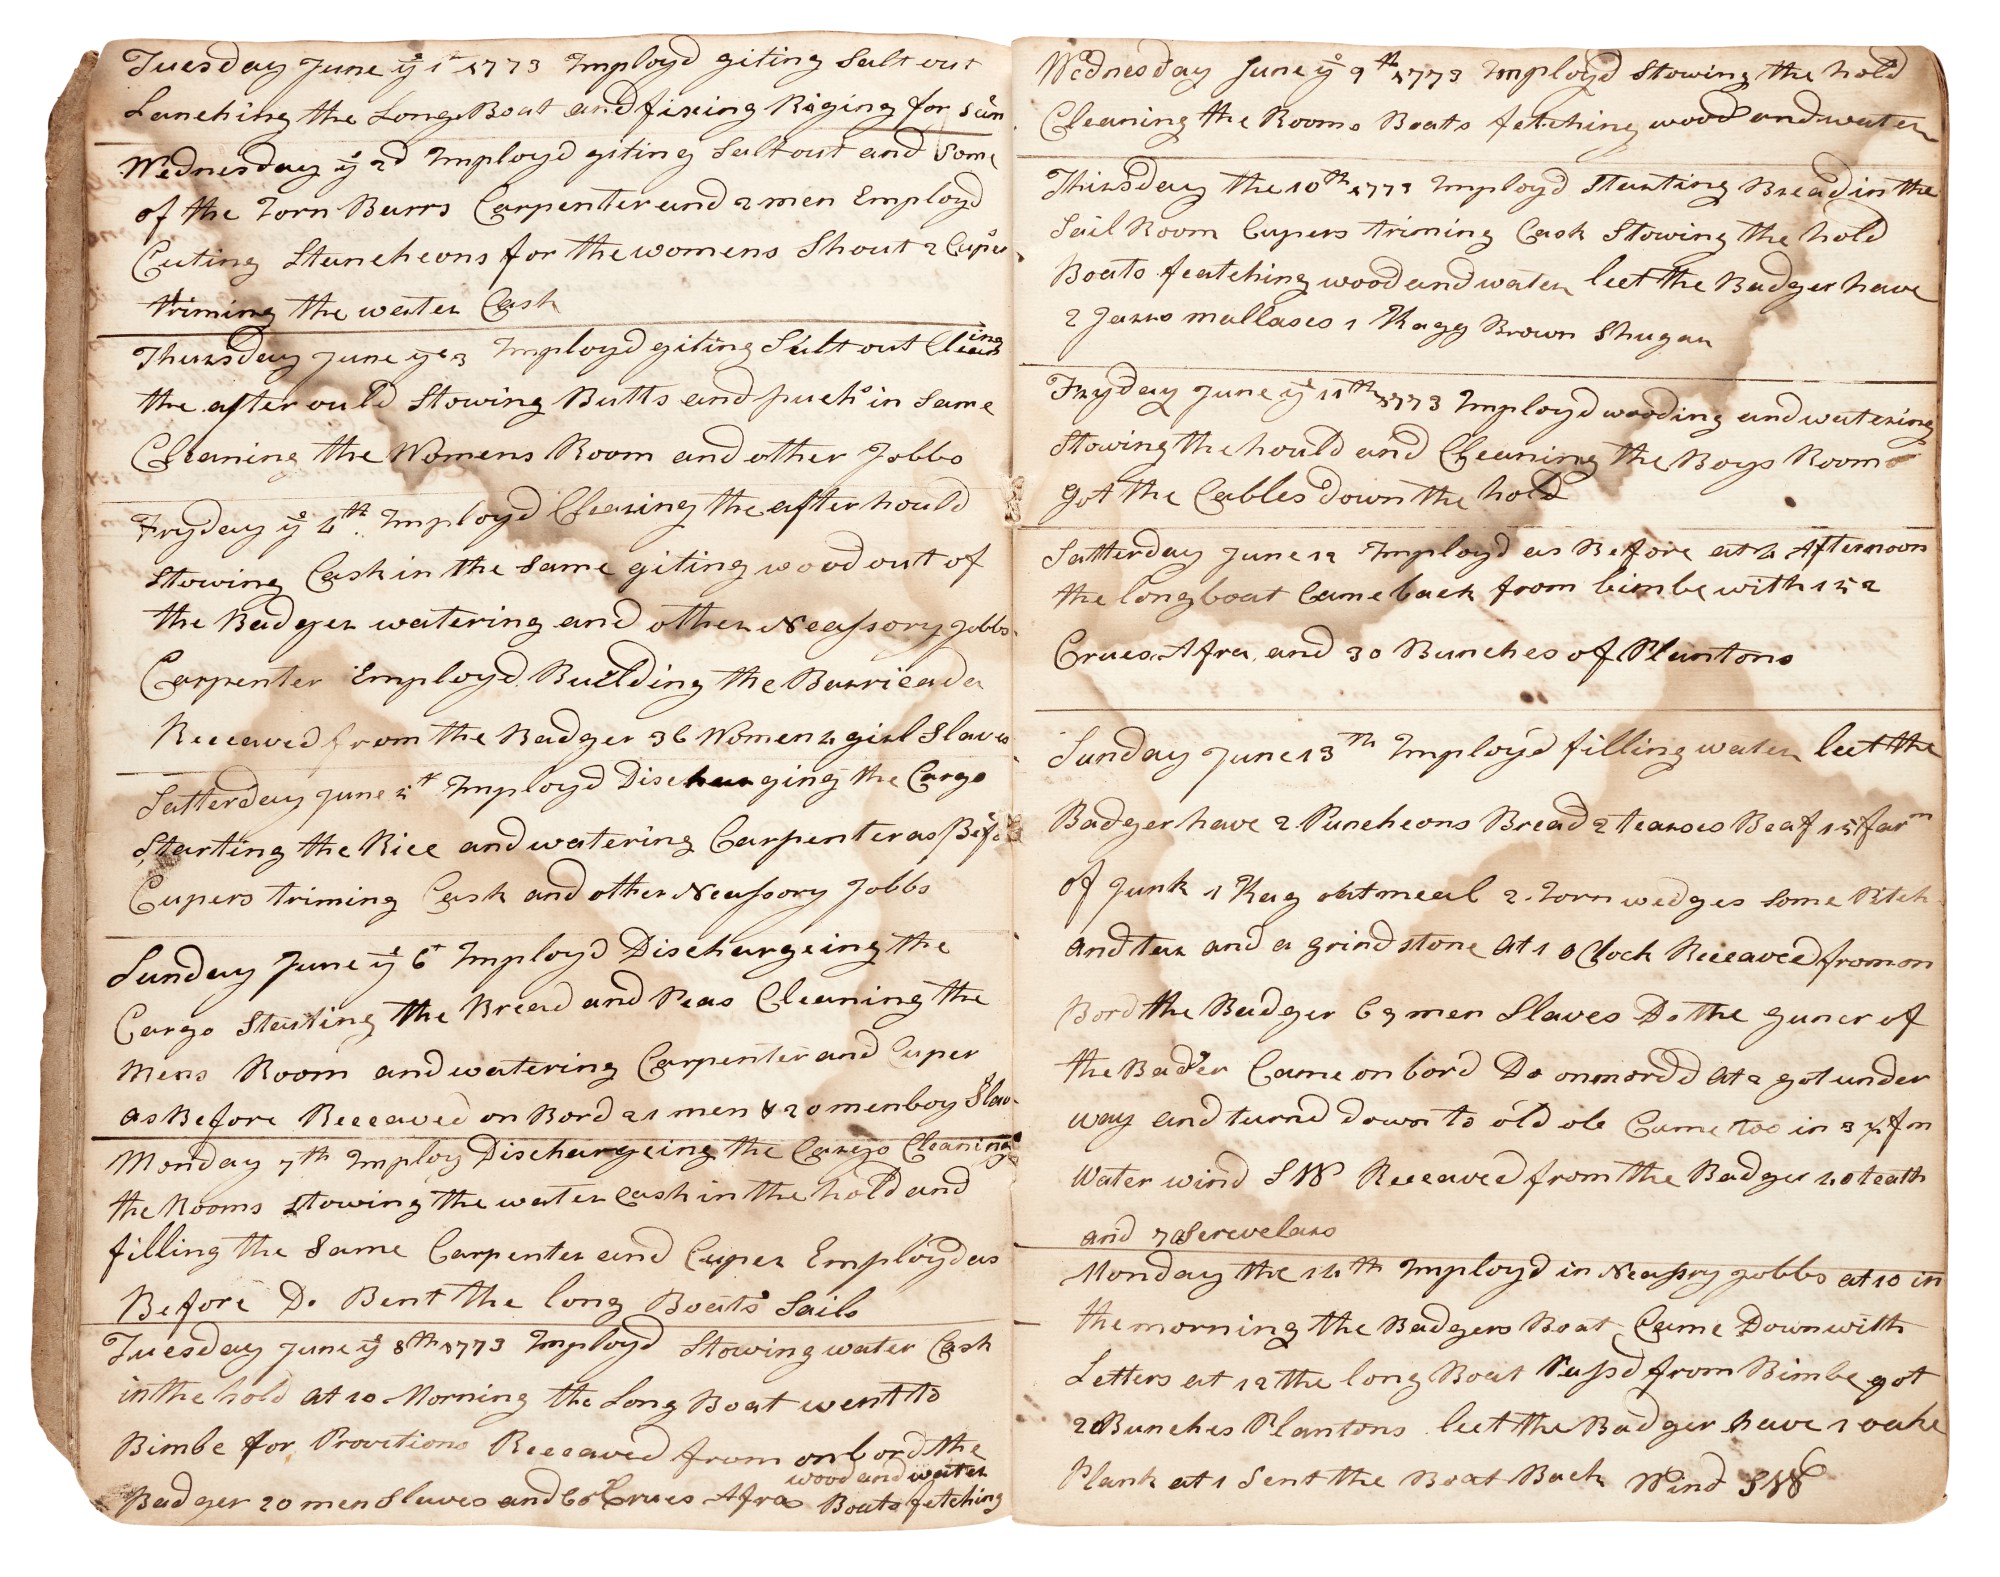 Tuesday June ye 1st 1773 Imployd giting Salt out
Lanching the Long Boat and fixing Riging for Sam
Wednesday ye 2d Imployd giting Salt out and Some
of the Iorn Barrs Carpenter and 2 men Employd
Cuting Stancheons for the womens Shout 2 Cupers
triming the water Cash
Thursday June ye 3 Imployd giting Salt out Cleearing
the after ould Stowing Butts and puchs in Same
Cleaning the Womens Room and other Jobbs
Fryday ye 4th Imployd Clearing the after hould
Stowing Cask in the Same giting wood out of
the Badger watering and other Neassory Jobbs
Carpenter Employd Building the Barricada
Receaved from the Badger 36 Women 4 girl Slaves
Satterday June 5t Imployd Discharging the Cargo
Starting the Rice and watering Carpenter as Before
Cupers triming Cask and other Neassory Jobbs
Sunday June ye 6t Imployd Dischargeing the
Cargo Starting the Bread and Peas Cleaning the
Mens Room and watering Carpenter and Cuper
as Before Receaved on Bord 21 men & 20 menboy Slav
Monday 7th Imploy Dischargeing the Cargo Cleaning
the Rooms Stowing the water Cash in the hold and
filling the Same Carpenter and Cuper Employd as
Before Do Bent the long Boats Sails
Tuesday June ye 8th 1773 Imployd Stowing water Cash
in the hold at 10 Morning the Long Boat went to
Bimbe for Provitions Receaved from on bord the
wood and water
Badger 20 men Slaves and 60 Crues Afra Boats fetching
Wednesday June ye 9th 1773 Imployd Stowing the hold
Cleaning the Rooms Boats fetching wood and water
Thursday the 10th 1773 Imployd Starting Bread in the
Sail Room Cupers triming Cask Stowing the hold
Boats featching wood and water leet the Badger have
2 Jarrs mallases 1 Kagg Brown Shugar
Fryday June ye 11th 1773 Imployd wooding and watering
Stowing the hould and Cleaning the Boys Room
got the Cables down the hold
Satterday June 12 Imployd as Before at 4 Afternoon
the longboat Came back from bimbe with 152
Crues Afra and 30 Bunches of Plantons
Sunday June 13th Imployd filling water leet the
Badger have 2 Puncheons Bread 2 tearses Beaf 15 farm
of Junk 1 Kag oatmeal 2 Iorn wedges Some Pitch
and tar and a grindstone at 1 o Clock Receaved from on
Bord the Badger 69 men Slaves Do the guner of
the Badger Came on bord Do onmord at 2 got under
way and turnd down to old ole Came too in 3 ½ fm
Water wind SW Receaved from the Badger 40 teath
and 7 Screvelars
Monday the 14th Imployd in Neassry Jobbs at 10 in
the morning the Badgers Boat Came Down with
Letters at 12 the long Boat Passd from Bimbe got
20 Bunches Plantons leet the Badger have 1 oake
Plank at 1 Sent the Boat Back Wind SW